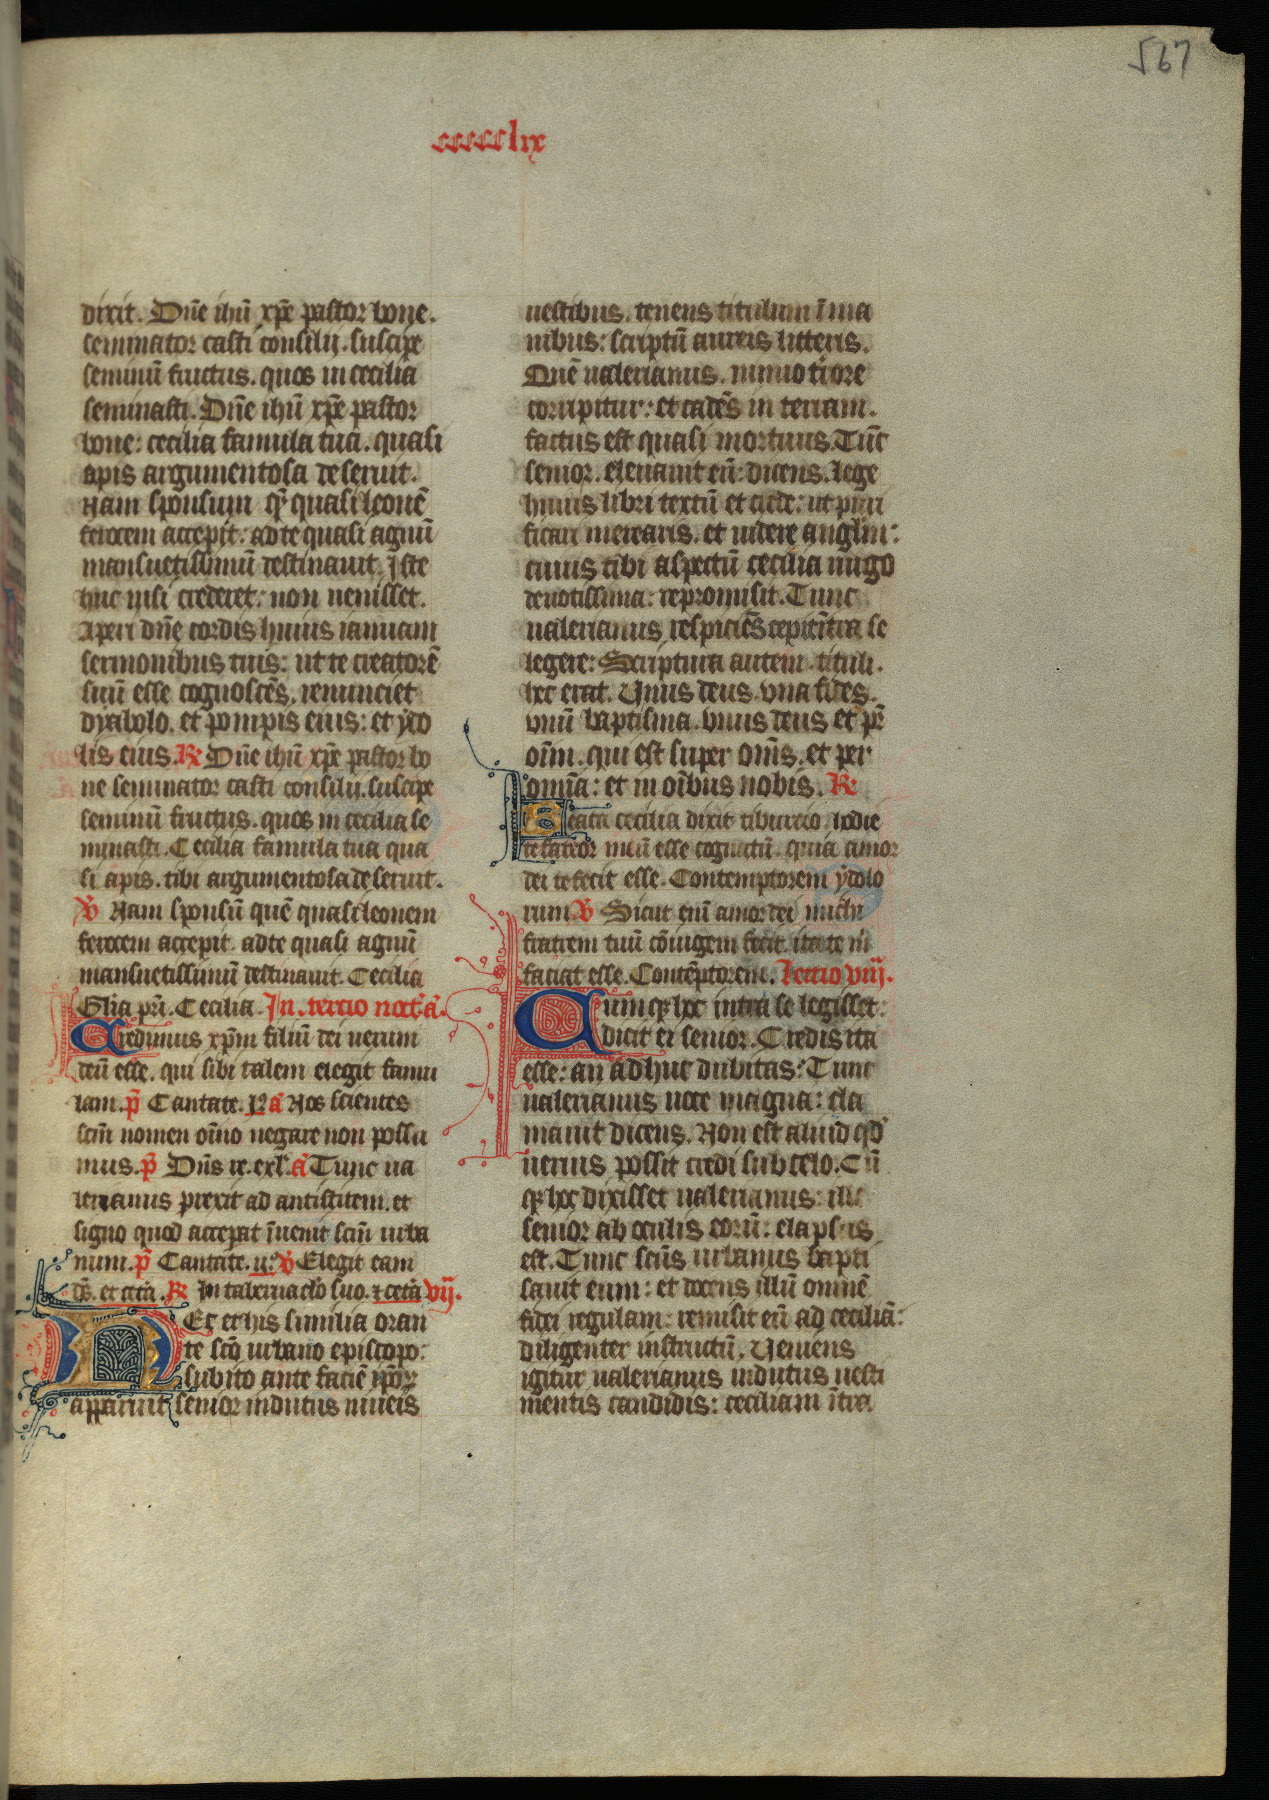 567
ccccclix
dixit. Dñe ihũ xp̃e pastor bone.
seminator casti consilij. suscipe
seminũ fructus. quos in cecilia
seminasti. Dñe ihũ xp̃e pastor
bone: cecilia famula tua. quasi
apis argumentosa deseruit.
Nam sponsum qͥ quasi leonẽ
ferocem accepit: ad te quasi agnũ
mansuetissimũ destinauit. Iste
huc nisi crederet: non uenisset.
Aperi dñe cordis huius ianuam
sermonibus tuis: ut te creatorẽ
suũ esse cognoscẽs. renunciet
dyabolo. et pompis eius: et ydo
lis eius. R̃ Dñe ihũ xp̃e pastor bo
ne seminator casti consilij. suscipe
seminũ fructus. quos in cecilia se
minasti. Cecilia famula tua qua
si apis. tibi argumentosa deseruit.
V̄ Nam sponsũ quẽ quasi leonem
ferocem accepit. ad te quasi agnũ
mansuetissimũ destinauit. Cecilia
Glia pr̃i. Cecilia. In. tercio noct̃. ã.
Credimus xp̃m filiũ dei uerum
deũ esse. qui sibi talem elegit famu
lam. p̃ Cantate. j̊. ã Nos scientes
scm̃ nomen oĩno negare non possu
mus. p̃ Dñs re. exl̃. ã Tunc ua
lerianus prexit ad antistitem. et
signo quod acceperat ĩuenit scm̃ urba
num. p̃ Cantate. ij. V̄ Elegit eam
dẽ. et cetã. R̃ In tabernaclo suo. ⁊ cetã vij.
Ec et his similia oran
te scõ urbano episcopo:
subito ante faciẽ ipõr
apparuit senior indutus niueis
uestibus. tenens titulum ĩ ma
nibus: scriptũ aureis litteris.
Quẽ ualerianus. nimio tiore
corripitur: et cadẽs in terram.
factus est quasi mortuus. Tũc
senior. eleuauit eũ: dicens. lege
huius libri textũ et crede: ut puri
ficari merearis. et uidere anglm̃:
cuius tibi aspectũ cecilia uirgo
deuotissima: repromisit. Tunc
ualerianus respiciẽs cepit ĩtra se
legere: Scriptura autem tituli.
hec erat. Unus deus. vna fides.
vnũ baptisma. vnus deus et pr̃
oĩm. qui est super om̃s. et per
omĩa: et in oĩbus nobis. R̃
Beata cecilia dixit tiburcio. hodie
te fateor meũ esse cognatũ. quia amor
dei te fecit esse. Contemptorem ydolo
rum V̄ Sicut enĩ amor dei michi
fratrem tuũ cõiugem fecit. ita te m̃
faciat esse. Contẽptorem. Lectio viij.
Cumqꝫ hec intra se legisset:
dicit ei senior. Credis ita
esse: an adhuc dubitas: Tunc
ualerianus uoce magna: cla
mauit dicens. Non est aliud qd̃
uerius possit credi sub celo. Cũ
qꝫ hec dixisset ualerianus: ille
senior ab oculis eorũ: elapsus
est. Tunc scũs urbanus bapti
sauit eum: et docens illũ omnẽ
fidei regulam: remisit eũ ad ceciliã:
diligenter instructũ. Veniens
igitur ualerianus indutus uesti
mẽtis candidis: ceciliam ĩtra